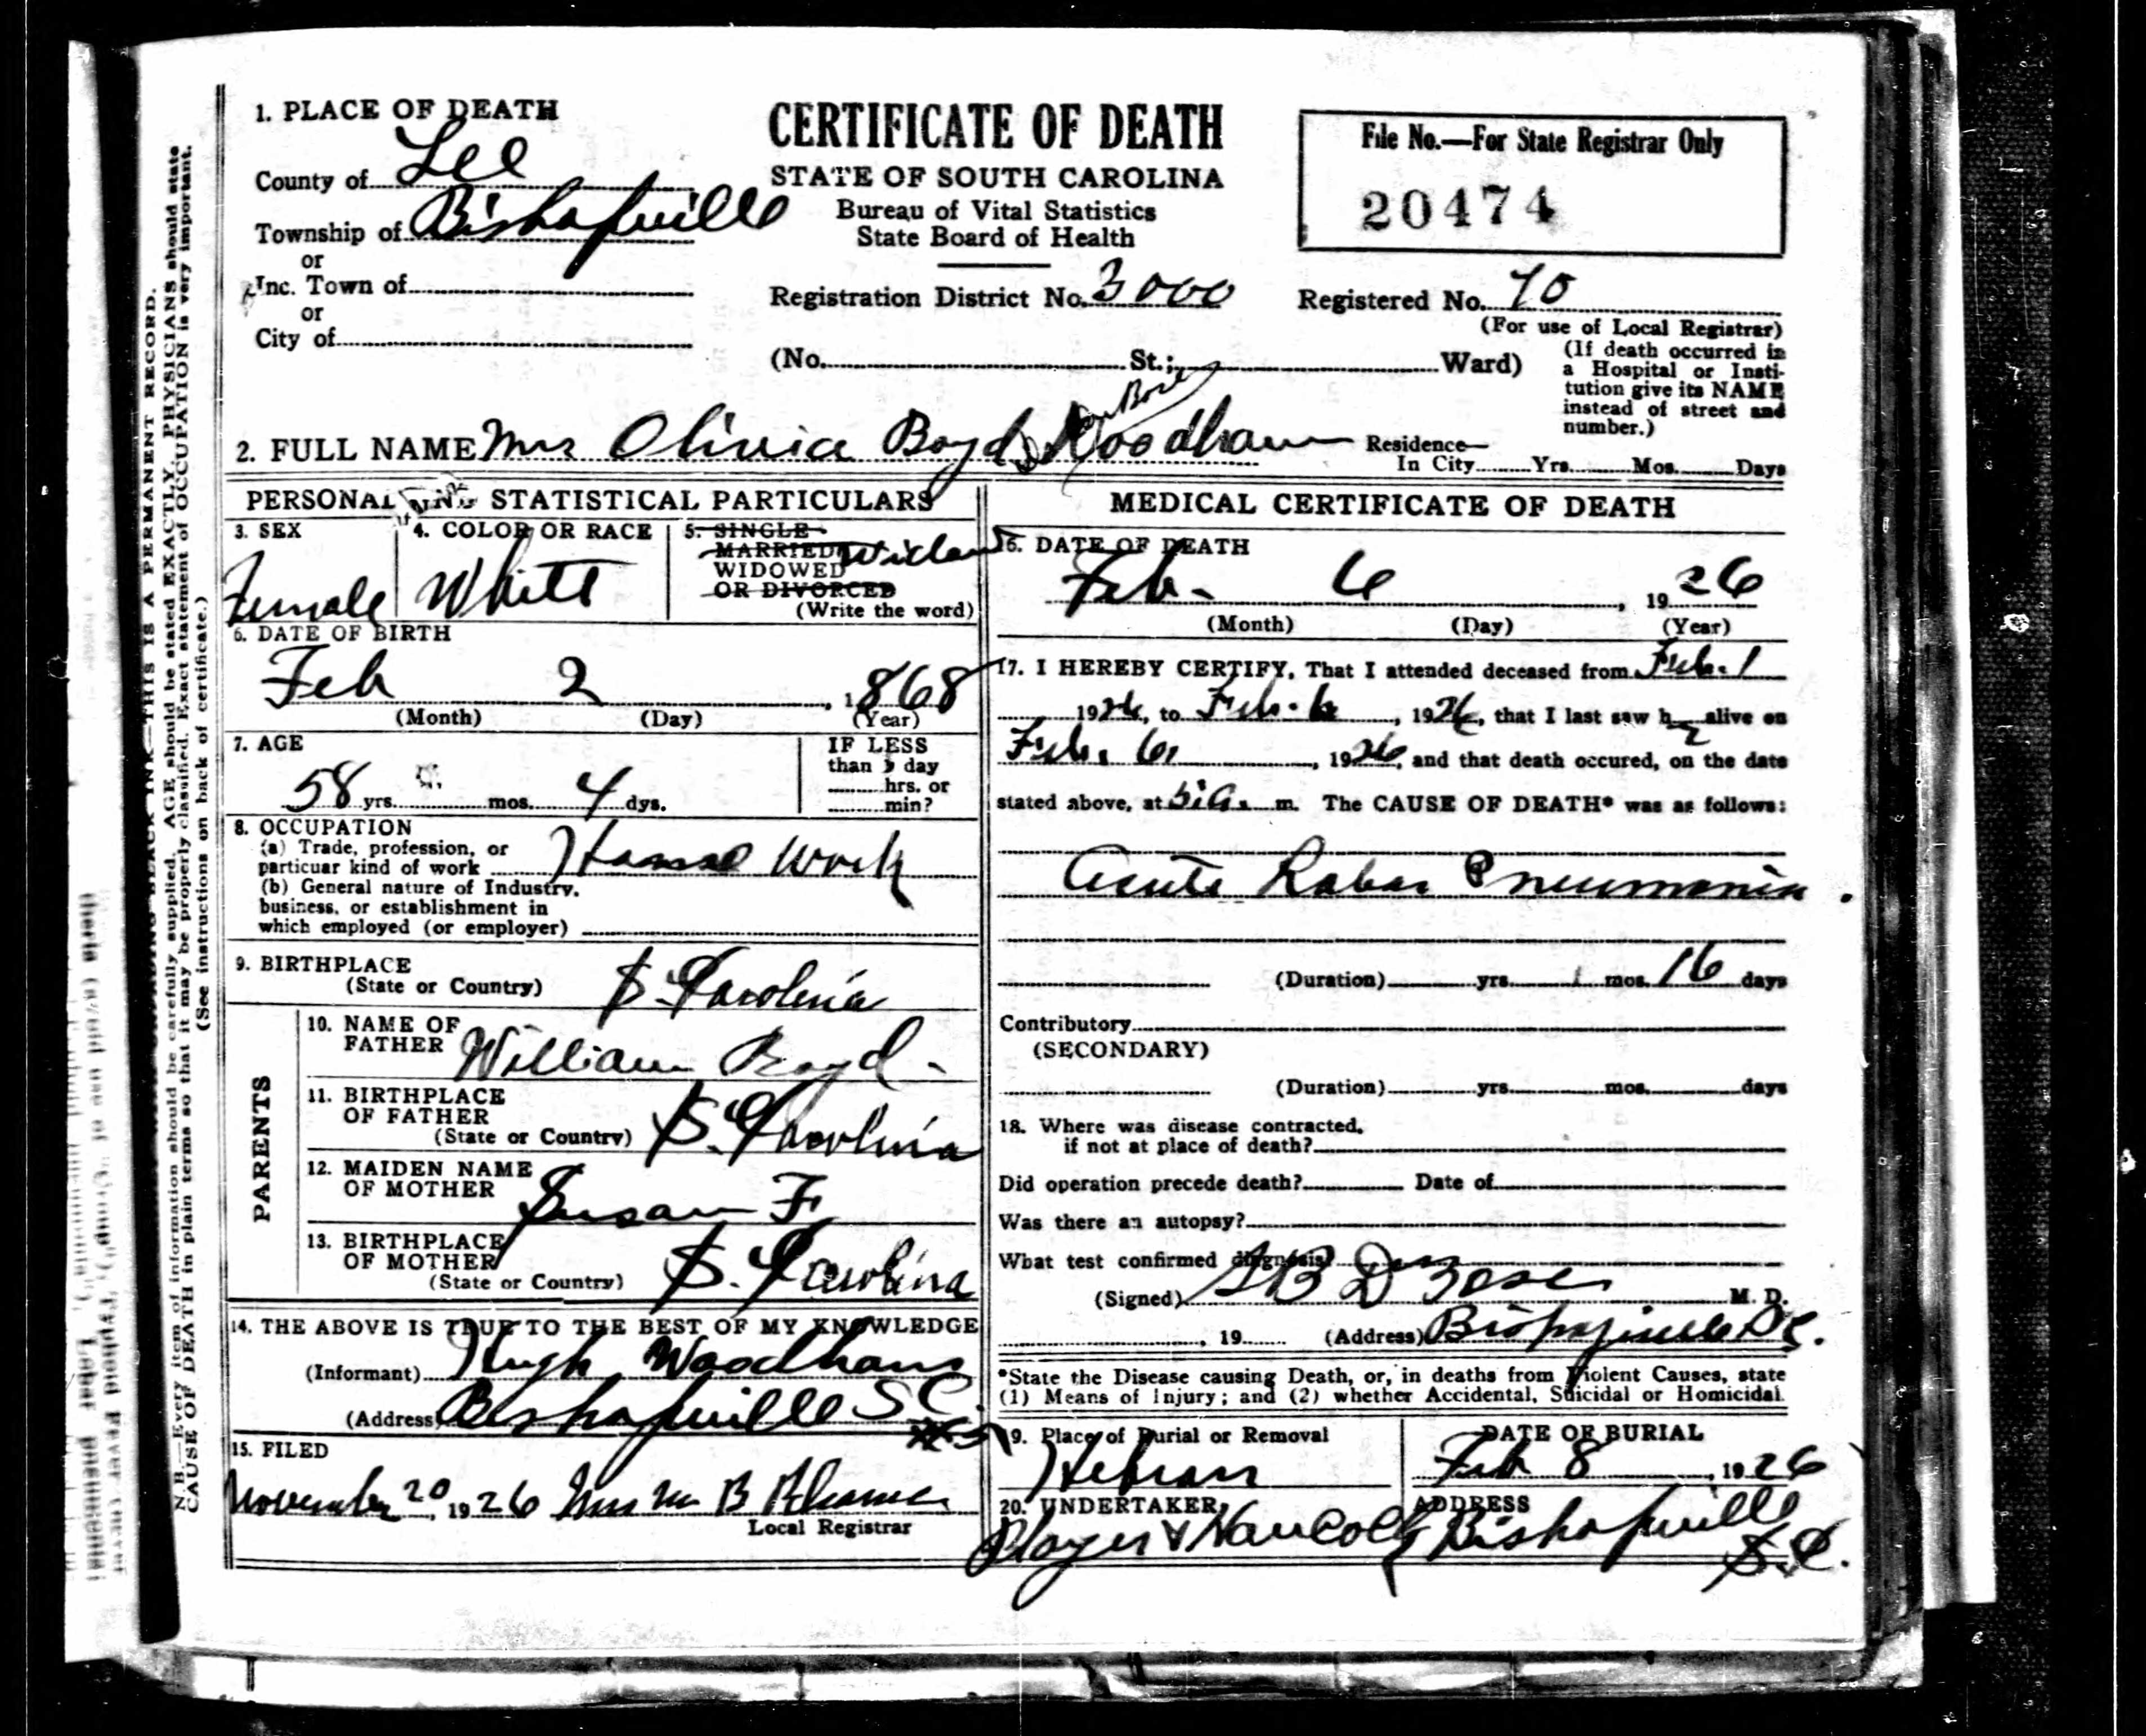 1. PLACE OF DEATH
County of Lee
Township of Bishopville
or
Inc. Town of
or
City of
CERTIFICATE OF DEATH
STATE OF SOUTH CAROLINA
Bureau of Vital Statistics
State Board of Health
Registration District No. 3000
(No. St.; Ward)
File No.—For State Registrar Only
20474
Registered No. 70
(For use of Local Registrar)
(If death occurred in
a Hospital or Insti-
tution give its NAME
instead of street and
number.)
2. FULL NAME Mrs Olivia Boyd Woodham
Residence—
In City Yrs. Mos. Days
PERSONAL AND STATISTICAL PARTICULARS
3. SEX
Female
4. COLOR OR RACE
White
5. SINGLE
MARRIED
WIDOWED
OR DIVORCED
(Write the word)
Widow
6. DATE OF BIRTH
Feb 2, 1868
(Month) (Day) (Year)
7. AGE
58 yrs. mos. 4 dys.
IF LESS
than 1 day
hrs. or
min?
8. OCCUPATION
(a) Trade, profession, or
particuar kind of work House Work
(b) General nature of Industry,
business, or establishment in
which employed (or employer)
9. BIRTHPLACE
(State or Country) S. Carolina
PARENTS
10. NAME OF
FATHER William Boyd
11. BIRTHPLACE
OF FATHER
(State or Country) S. Carolina
12. MAIDEN NAME
OF MOTHER Susan F
13. BIRTHPLACE
OF MOTHER
(State or Country) S. Carolina
14. THE ABOVE IS TRUE TO THE BEST OF MY KNOWLEDGE
(Informant) Hugh Woodham
(Address) Bishopville S C
15. FILED
November 20, 1926 Mrs M B
Local Registrar
MEDICAL CERTIFICATE OF DEATH
16. DATE OF DEATH
Feb. 6, 1926
(Month) (Day) (Year)
17. I HEREBY CERTIFY, That I attended deceased from Feb. 1
1926, to Feb. 6, 1926, that I last saw h alive on
Feb. 6, 1926, and that death occured, on the date
stated above, at 5 a. m. The CAUSE OF DEATH* was as follows:
Acute Lobar Pneumonia.
(Duration) yrs. mos. 16 days
Contributory
(SECONDARY)
(Duration) yrs. mos. days
18. Where was disease contracted,
if not at place of death?
Did operation precede death? Date of
Was there an autopsy?
What test confirmed diagnosis?
(Signed) M. D.
, 19 (Address) Bishopville S.C.
*State the Disease causing Death, or, in deaths from Violent Causes, state
(1) Means of Injury; and (2) whether Accidental, Suicidal or Homicidal.
19. Place of Burial or Removal
Hebron
DATE OF BURIAL
Feb 8, 1926
20. UNDERTAKER,
ADDRESS
Bishopville
S.C.
N. B.—Every item of information should be carefully supplied. AGE should be stated EXACTLY. PHYSICIANS should state
CAUSE OF DEATH in plain terms so that it may be properly classified. Exact statement of OCCUPATION is very important.
(See instructions on back of certificate.)
THIS IS A PERMANENT RECORD.